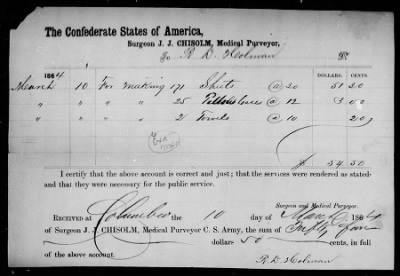 The Confederate States of America,
Surgeon J. J. CHISOLM, Medical Purveyor,
To R. D. Holman Dr.
DOLLARS. CENTS.
1864
March 10 For making 171 Shirts @ 30 51 30
" " " " 25 Pillowcases @ 12 3 00
" " " " 2 Towels @ 10 20
$ 54.50
I certify that the above account is correct and just; that the services were rendered as stated
and that they were necessary for the public service.
Surgeon and Medical Purveyor.
RECEIVED AT Columbia the 10 day of March 1864
of Surgeon J. J. CHISOLM, Medical Purveyor C. S. Army, the sum of Fifty four
dollars 50 cents, in full
of the above account.
R. D. Holman